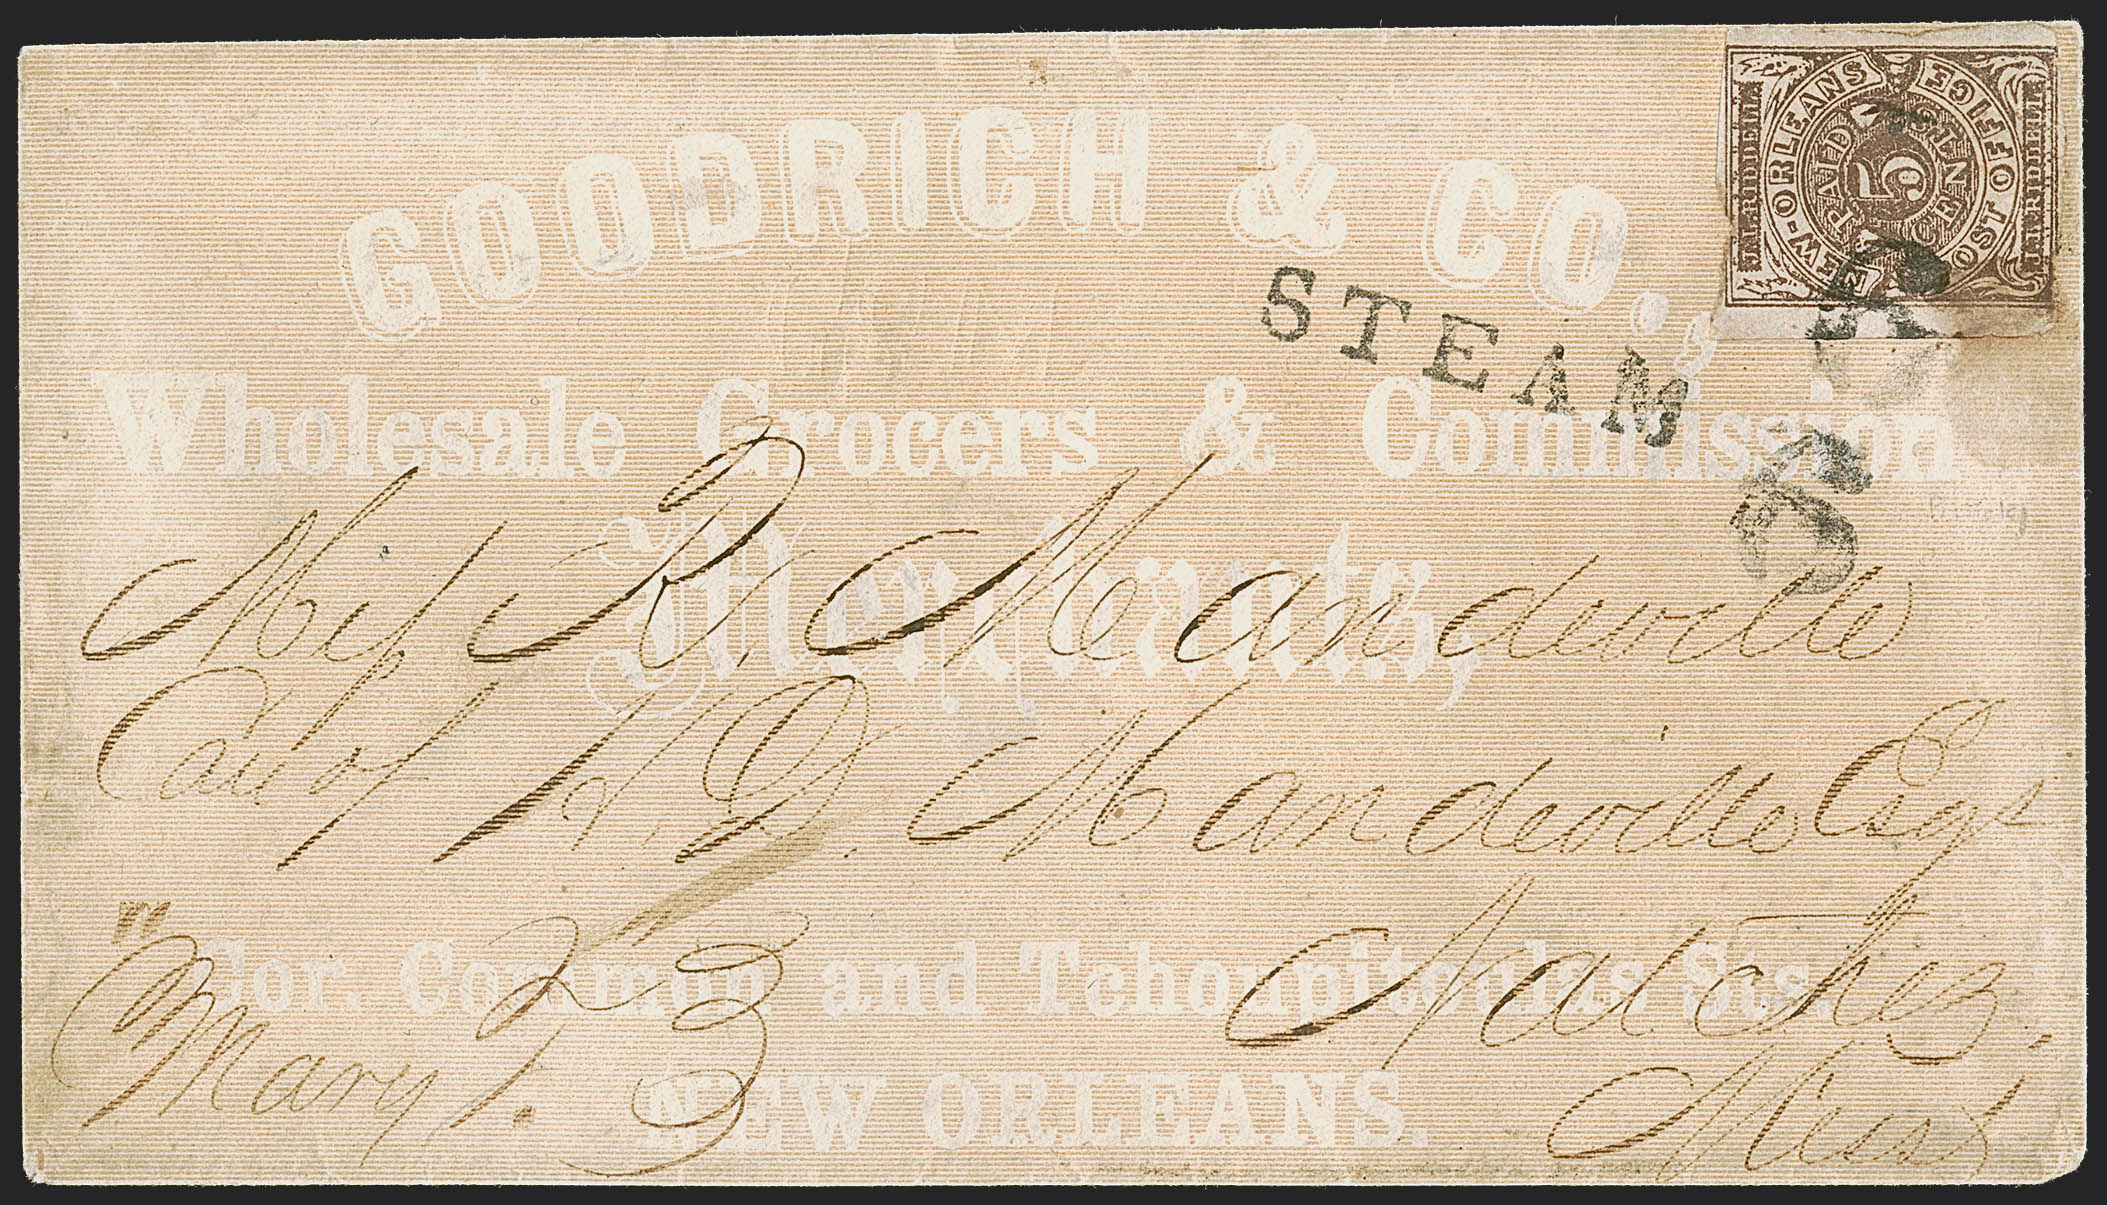 GOODRICH & CO.,
Wholesale Grocers & Commission
Merchants,
Cor. Common and Tchoupitoulas Sts.
NEW ORLEANS.
NEW-ORLEANS POST OFFICE
PAID 5 CENTS
J.L. RIDDELL
J.L. RIDDELL
STEAM
Miss R. Mandeville
Care of H. D. Mandeville Esqr
Natchez.
Miss
Mary T.